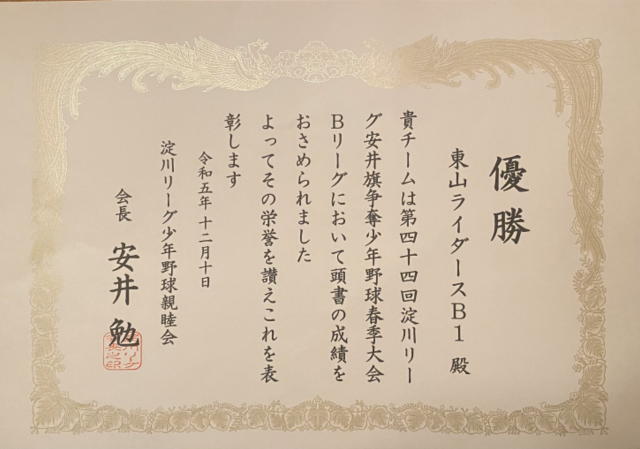 優勝
東山ライダースB1 殿
貴チームは第四十四回淀川リー
グ安井旗争奪少年野球春季大会
Bリーグにおいて頭書の成績を
おさめられました
よってその栄誉を讃えこれを表
彰します
令和五年 十二月十日
淀川リーグ少年野球親睦会
会長 安井 勉